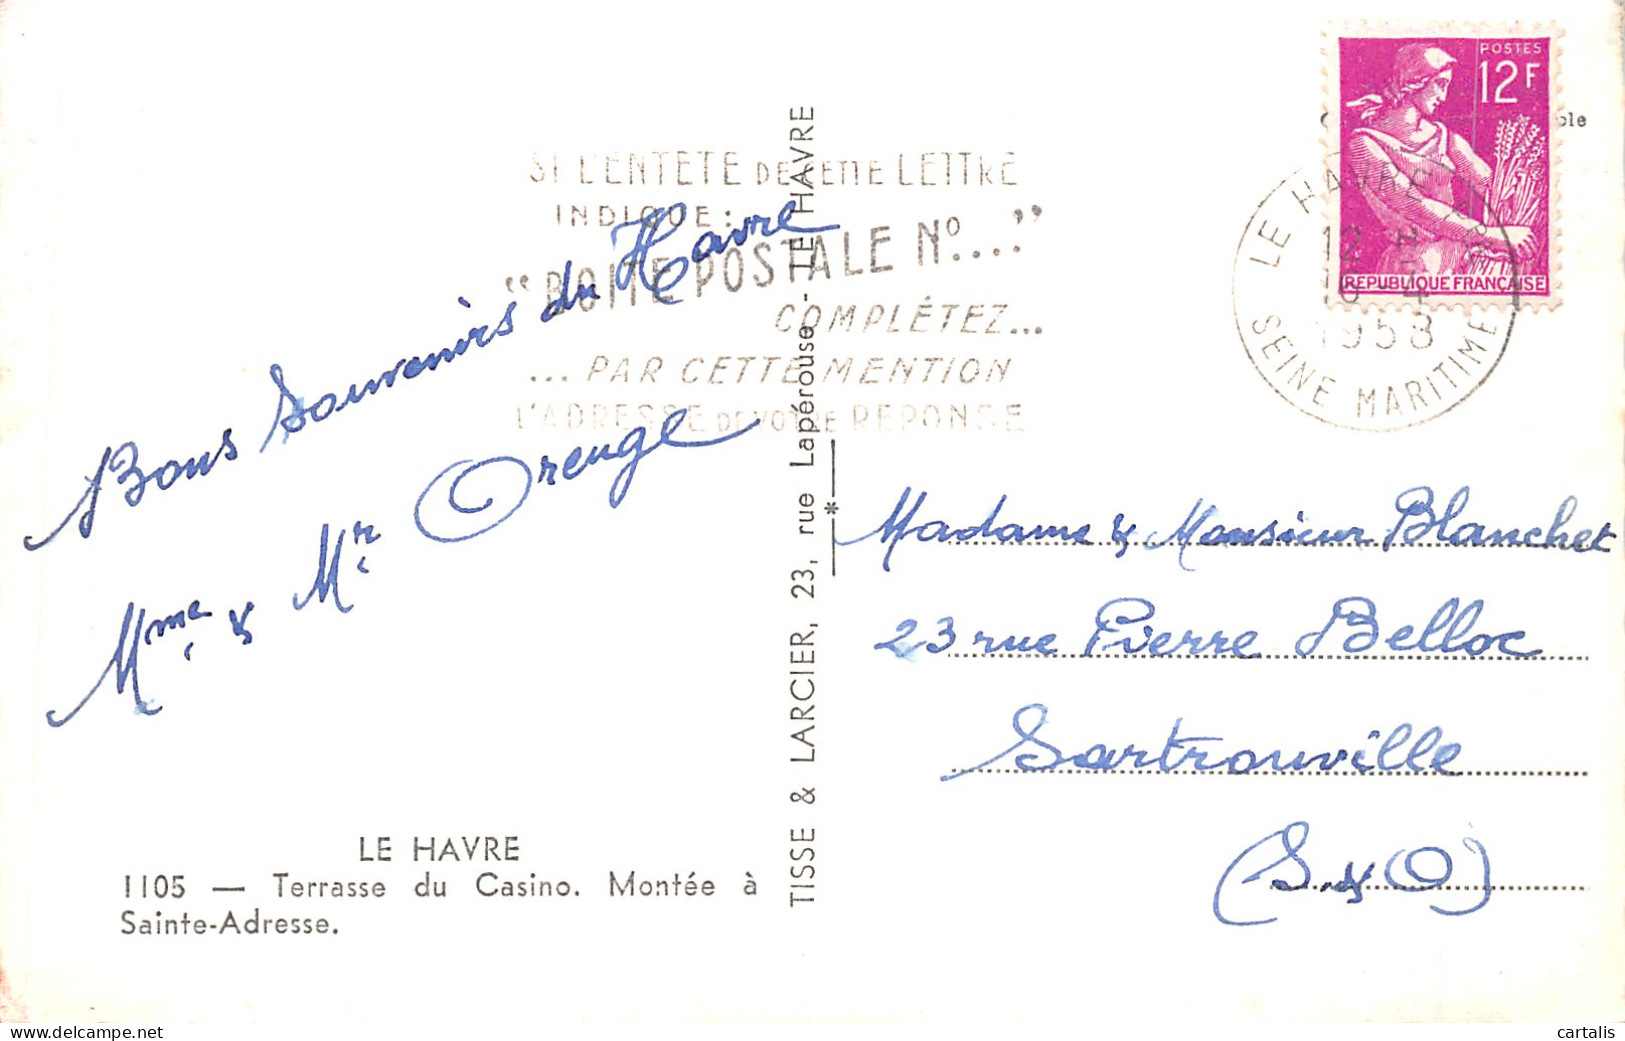 SI L'ENTETE DE CETTE LETTRE
INDIQUE :
"BOITE POSTALE No..."
COMPLÉTEZ...
...PAR CETTE MENTION
L'ADRESSE DE VOTRE REPONSE
Bons Souvenirs du Havre
Mme & Mr Orenge
LE HAVRE
1105 — Terrasse du Casino. Montée à
Sainte-Adresse.
TISSE & LARCIER, 23, rue Lapérouse - LE HAVRE
POSTES
12F
REPUBLIQUE FRANÇAISE
LE HAVRE
12 H
1958
SEINE MARITIME
Madame & Monsieur Blanchet
23 rue Pierre Belloc
Sartrouville
(S.&O)
www.delcampe.net
cartalis